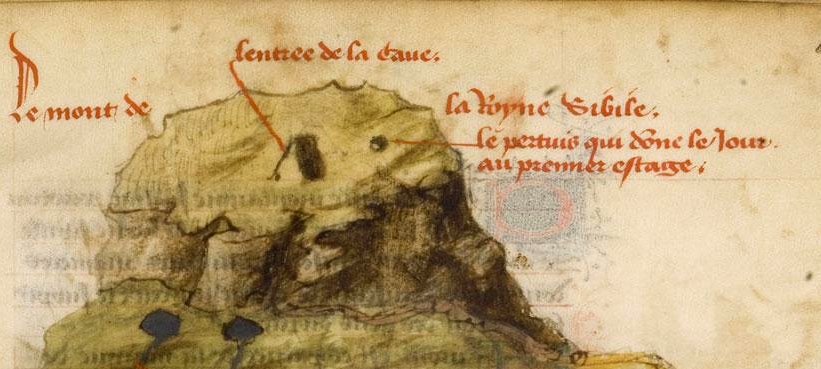 lentree de la Cave.
Le mont de la Royne Sibile.
le pertuis qui dõne le Jour
au premier estage.